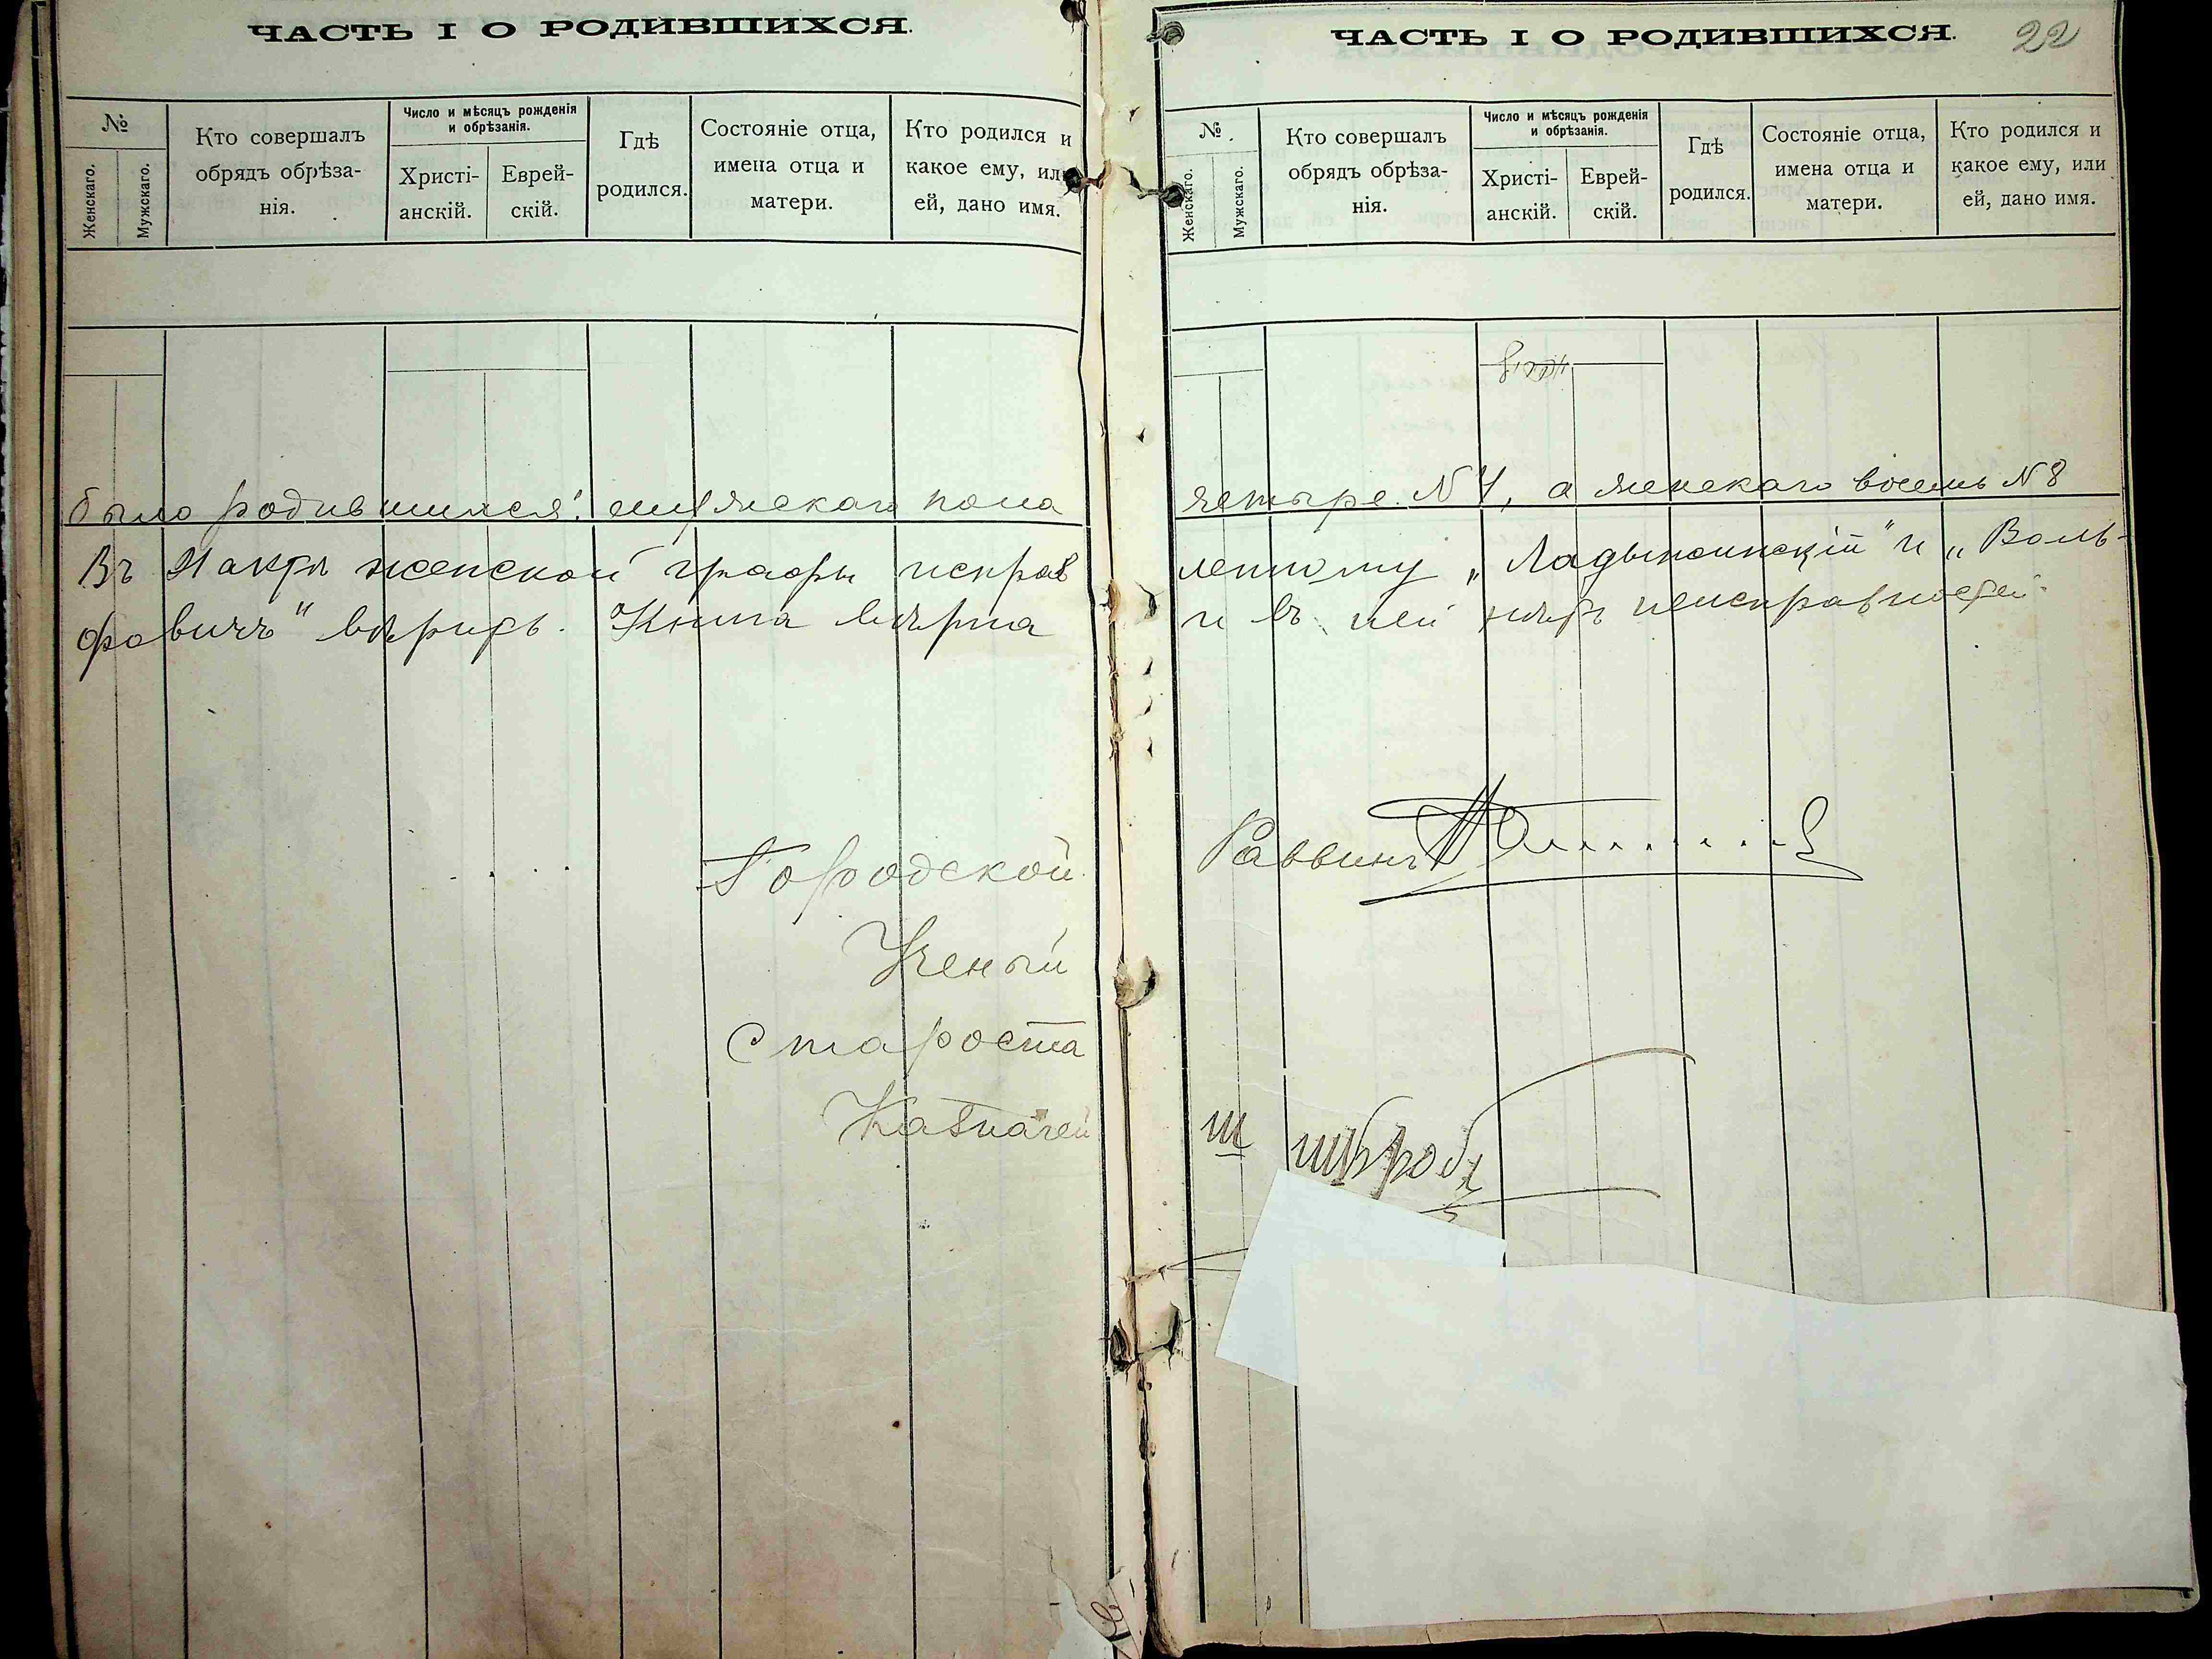 ЧАСТЬ I О РОДИВШИХСЯ.
№
Женскаго.
Мужскаго.
Кто совершалъ
обрядъ обрѣза-
нія.
Число и мѣсяцъ рожденія
и обрѣзанія.
Христі-
анскій.
Еврей-
скій.
Гдѣ
родился.
Состояніе отца,
имена отца и
матери.
Кто родился и
какое ему, или
ей, дано имя.
было родившихся: мужскаго пола
Въ актѣ женской графы исправ
фовичъ" вѣрить. Книга вѣрна
Городской
Ученый
Староста
Казначей
ЧАСТЬ I О РОДИВШИХСЯ.
22
№
Женскаго.
Мужскаго.
Кто совершалъ
обрядъ обрѣза-
нія.
Число и мѣсяцъ рожденія
и обрѣзанія.
Христі-
анскій.
Еврей-
скій.
Гдѣ
родился.
Состояніе отца,
имена отца и
матери.
Кто родился и
какое ему, или
ей, дано имя.
четыре № 4, а женскаго восемь № 8
ленному „Ладыжинскій" и „Воль-
и въ ней нѣтъ неисправностей
Раввинъ
Ш